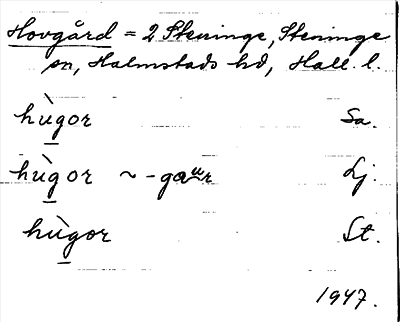 Hovgård = 2 Steninge, Steninge
sn, Halmstads hd, Hall. l.
hùgor Sa.
hùgor ~ -gaur Lj.
hùgor St.
1947.